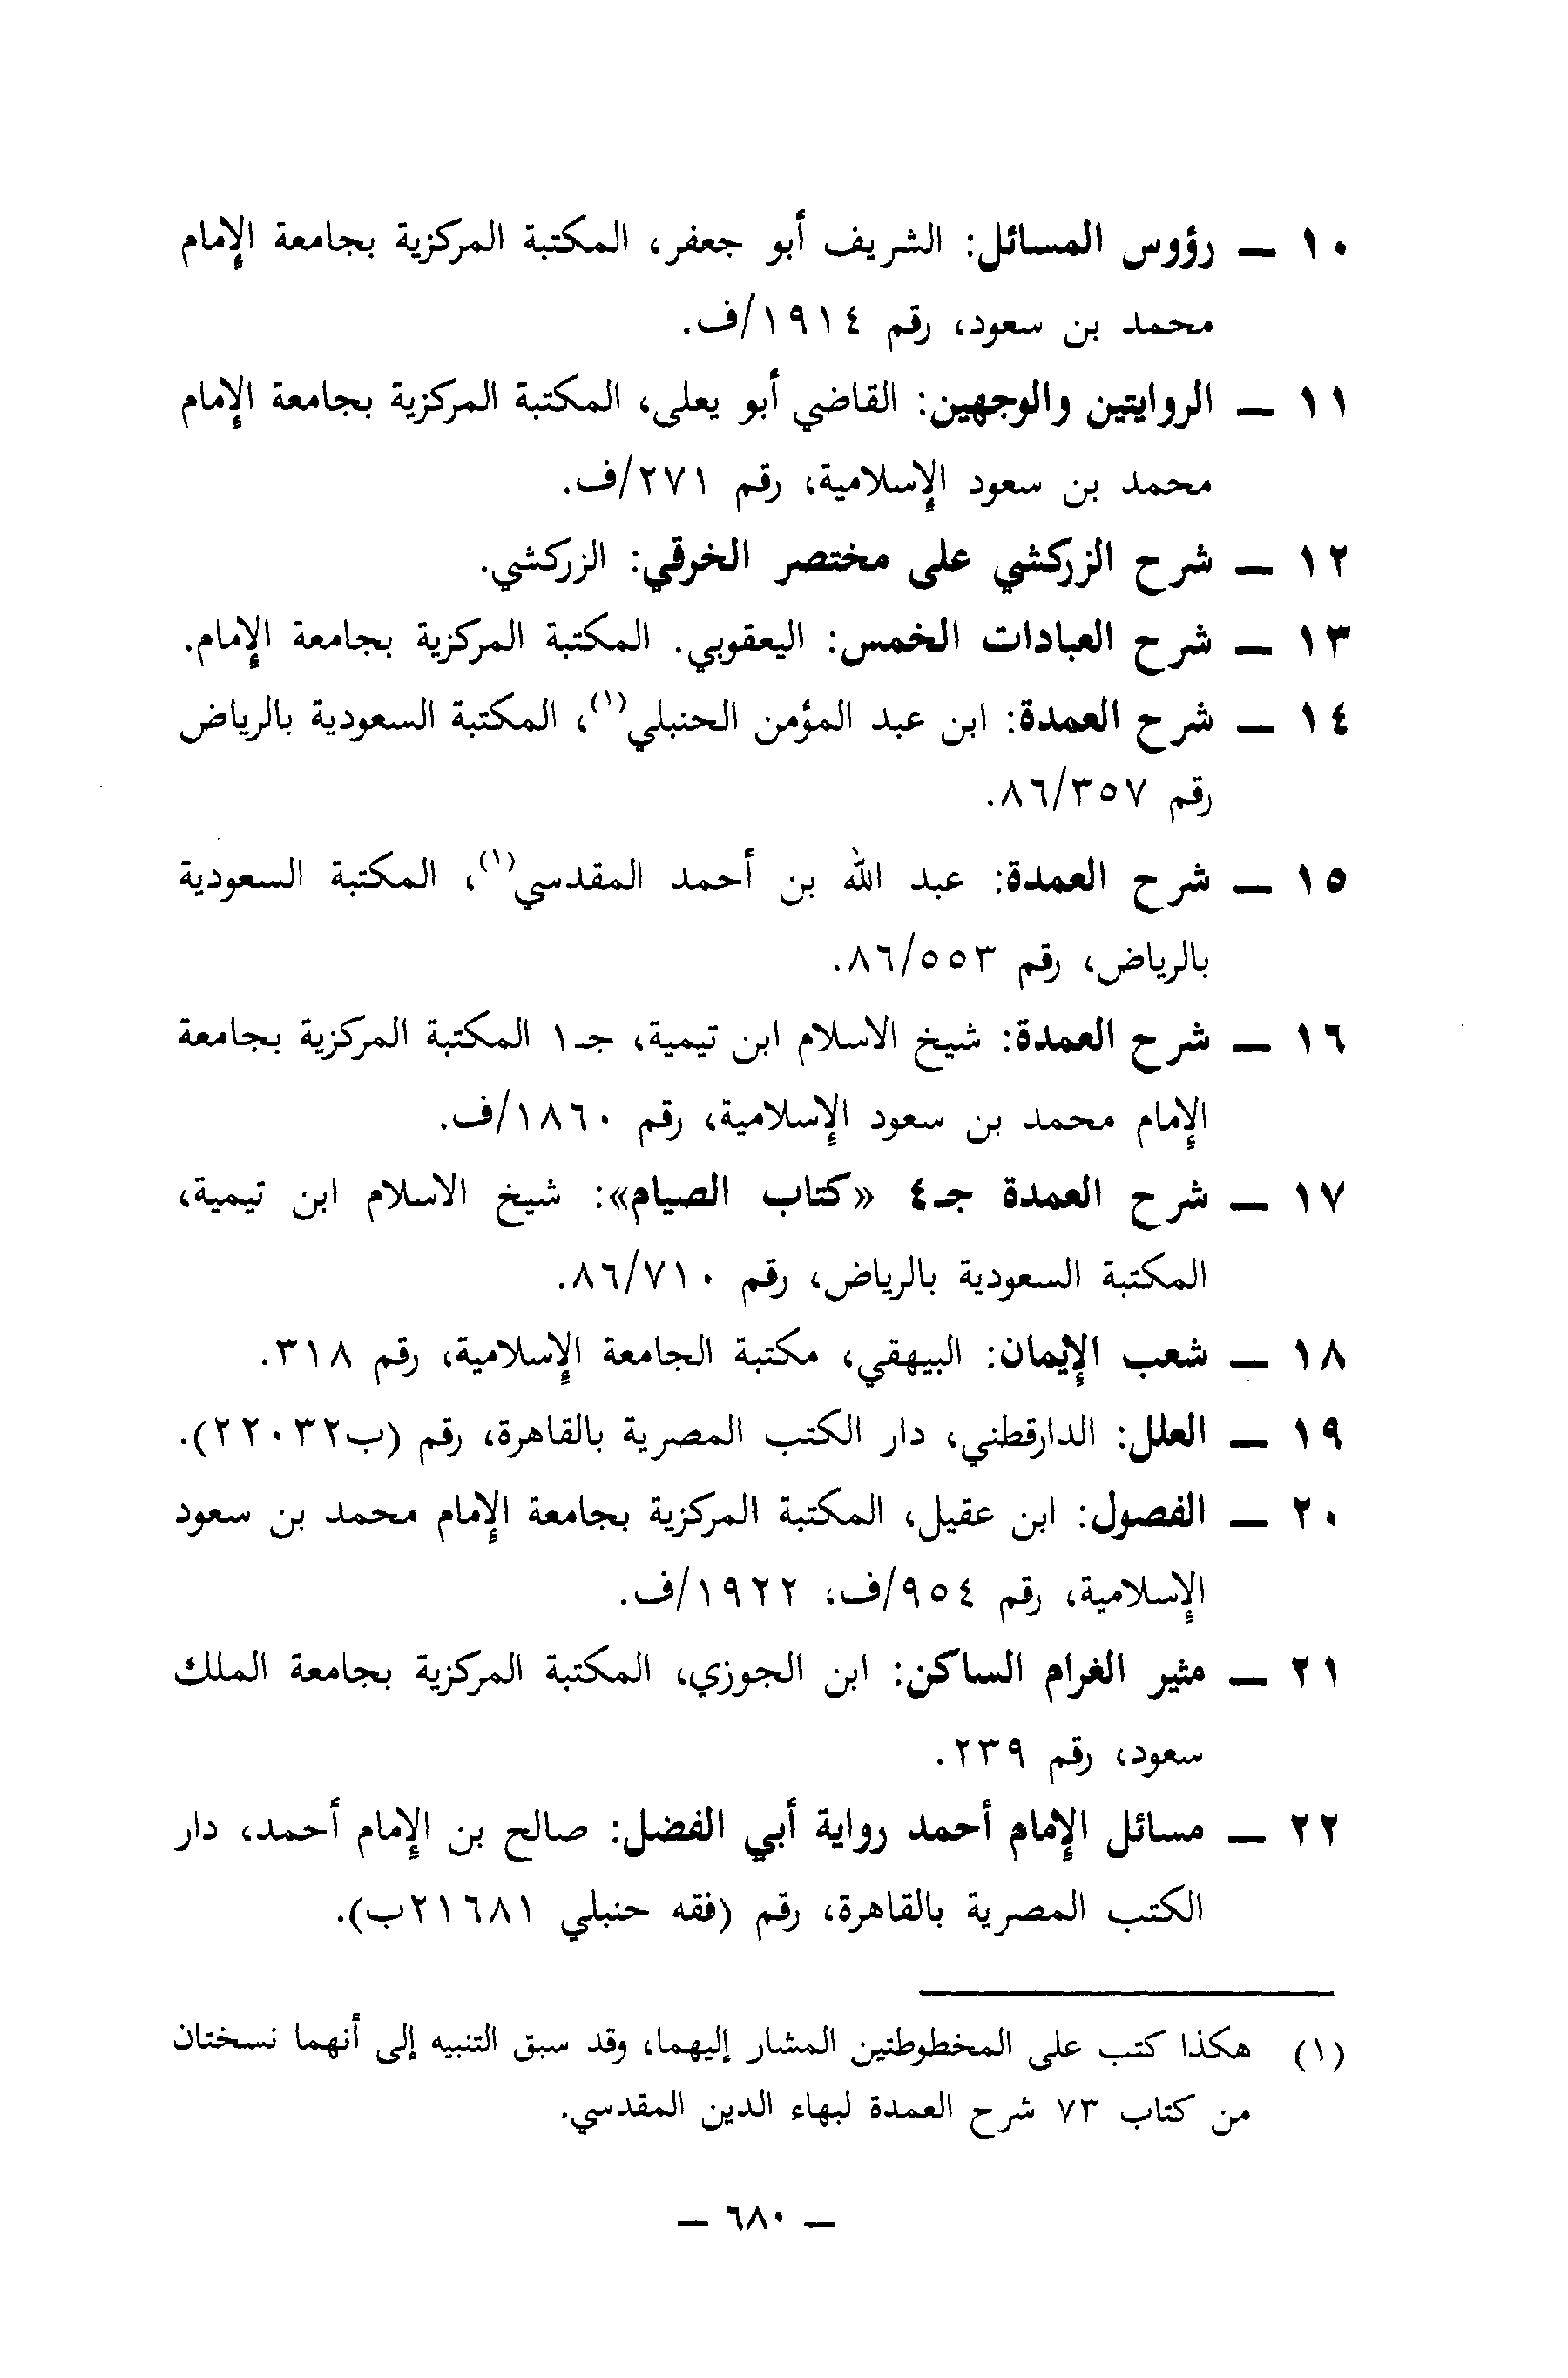 ١٠ — رؤوس المسائل: الشريف أبو جعفر، المكتبة المركزية بجامعة الإمام
محمد بن سعود، رقم ١٩١٤/ف.
١١ — الروايتين والوجهين: القاضي أبو يعلى، المكتبة المركزية بجامعة الإمام
محمد بن سعود الإسلامية، رقم ٢٧١/ف.
١٢ — شرح الزركشي على مختصر الخرقي: الزركشي.
١٣ — شرح العبادات الخمس: اليعقوبي. المكتبة المركزية بجامعة الإمام.
١٤ — شرح العمدة: ابن عبد المؤمن الحنبلي(١)، المكتبة السعودية بالرياض
رقم ٨٦/٣٥٧.
١٥ — شرح العمدة: عبد الله بن أحمد المقدسي(١)، المكتبة السعودية
بالرياض، رقم ٨٦/٥٥٣.
١٦ — شرح العمدة: شيخ الاسلام ابن تيمية، جـ١ المكتبة المركزية بجامعة
الإمام محمد بن سعود الإسلامية، رقم ١٨٦٠/ف.
١٧ — شرح العمدة جـ٤ «كتاب الصيام»: شيخ الاسلام ابن تيمية،
المكتبة السعودية بالرياض، رقم ٨٦/٧١٠.
١٨ — شعب الإيمان: البيهقي، مكتبة الجامعة الإسلامية، رقم ٣١٨.
١٩ — العلل: الدارقطني، دار الكتب المصرية بالقاهرة، رقم (ب٢٢٠٣٢).
٢٠ — الفصول: ابن عقيل، المكتبة المركزية بجامعة الإمام محمد بن سعود
الإسلامية، رقم ٩٥٤/ف، ١٩٢٢/ف.
٢١ — مثير الغرام الساكن: ابن الجوزي، المكتبة المركزية بجامعة الملك
سعود، رقم ٢٣٩.
٢٢ — مسائل الإمام أحمد رواية أبي الفضل: صالح بن الإمام أحمد، دار
الكتب المصرية بالقاهرة، رقم (فقه حنبلي ٢١٦٨١ب).
(١) هكذا كتب على المخطوطتين المشار إليهما، وقد سبق التنبيه إلى أنهما نسختان
من كتاب ٧٣ شرح العمدة لبهاء الدين المقدسي.
— ٦٨٠ —